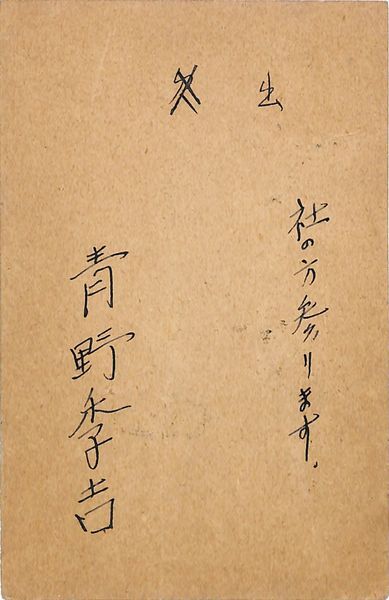 出
社の方参ります。
青野季吉